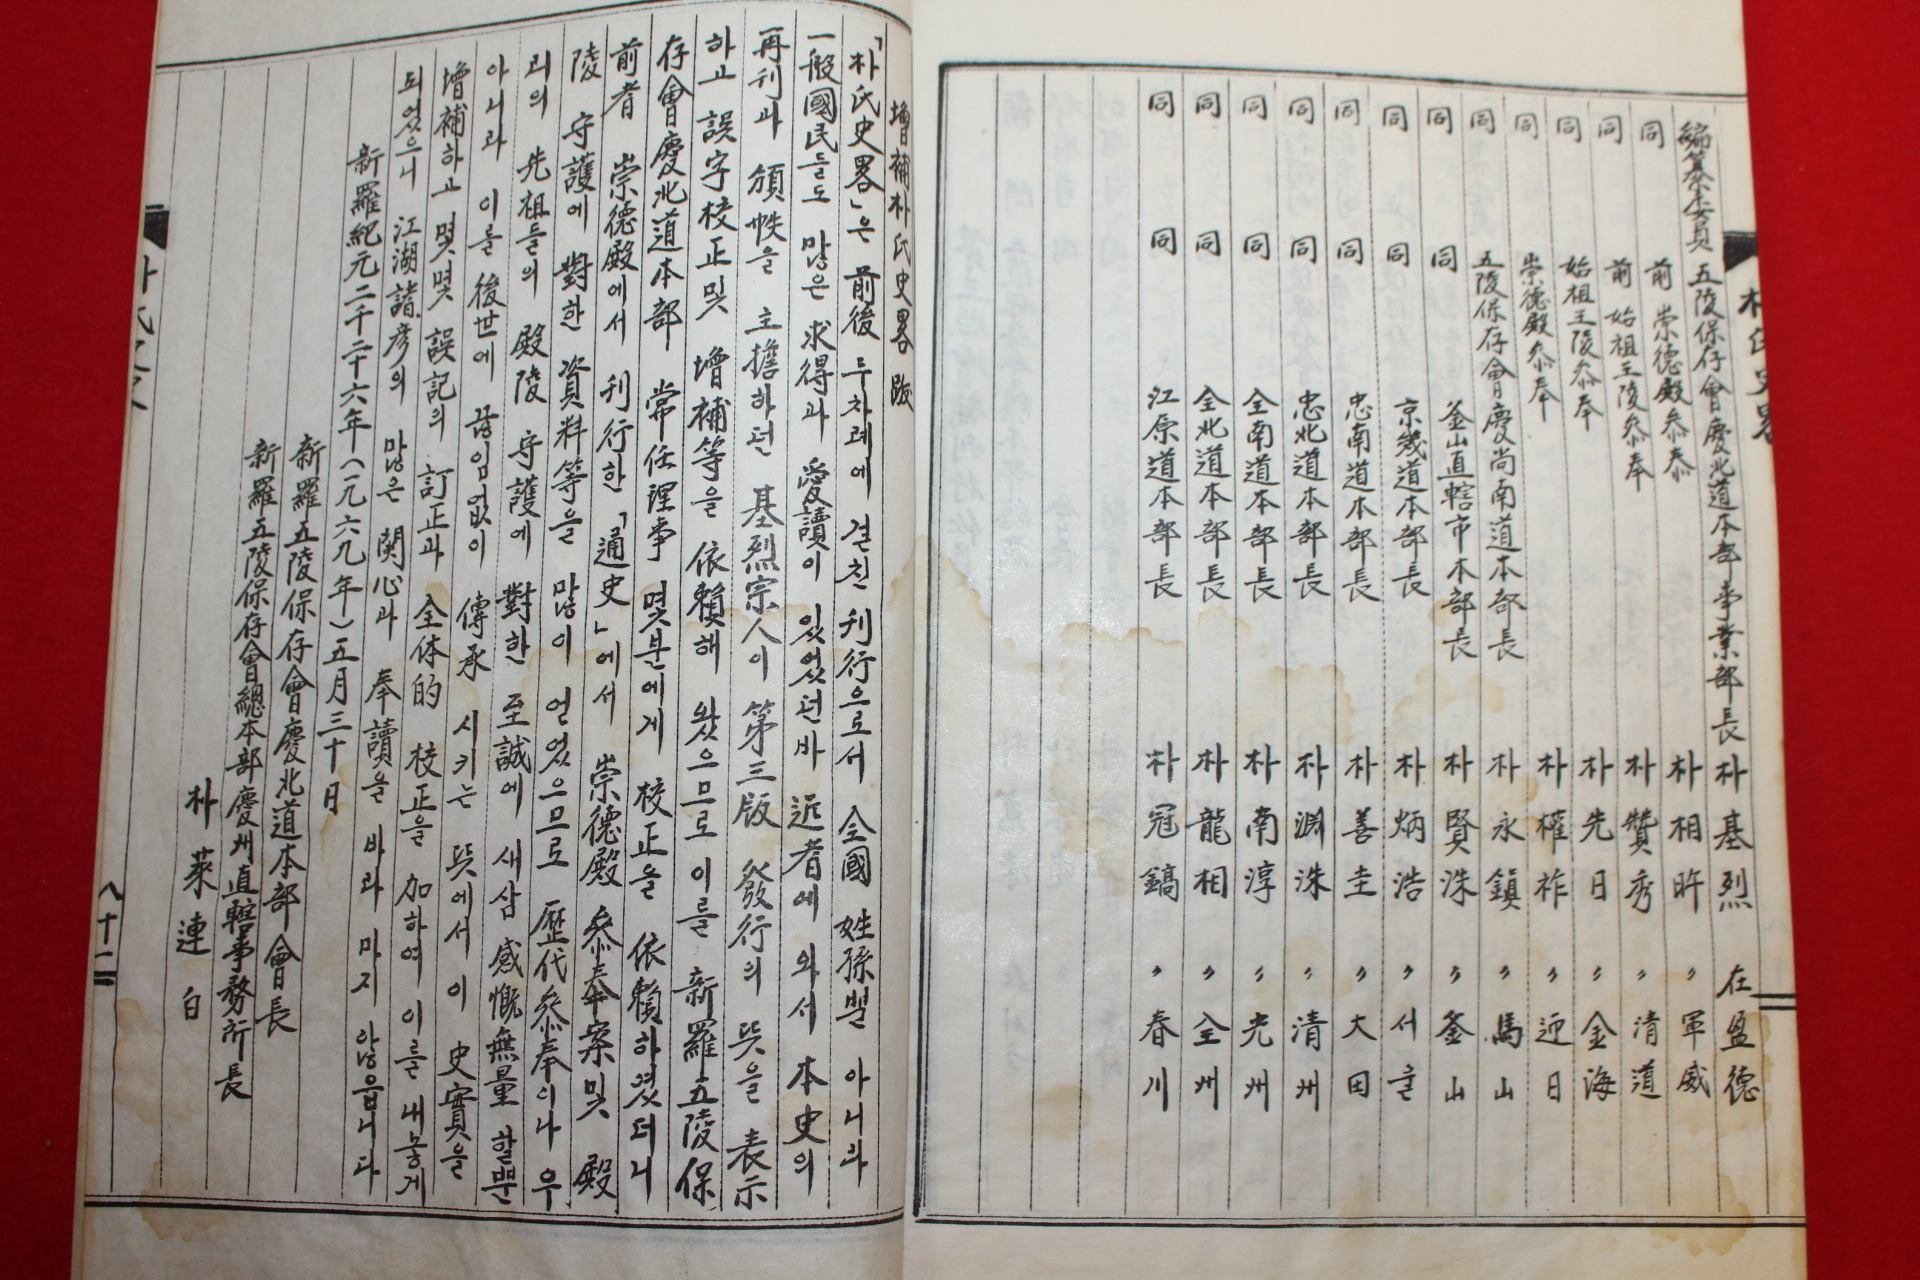 朴氏史畧
編纂委員 五陵保存會慶北道本部事業部長 朴基烈 在盈德
同 前 崇德殿叅奉 朴相昨 〃軍威
同 前 始祖王陵叅奉 朴贊秀 〃清道
同 始祖王陵叅奉 朴先日 〃金海
同 崇德殿叅奉 朴權祚 〃迎日
同 五陵保存會慶尚南道本部長 朴永鎭 〃馬山
同 同 釜山直轄市本部長 朴賢洙 〃釜山
同 同 京畿道本部長 朴炳浩 〃서울
同 同 忠南道本部長 朴善圭 〃大田
同 同 忠北道本部長 朴淵洙 〃清州
同 同 全南道本部長 朴南淳 〃光州
同 同 全北道本部長 朴龍相 〃全州
同 同 江原道本部長 朴冠鎬 〃春川
增補朴氏史畧 跋
「朴氏史畧」은 前後 두차례에 걸친 刊行으로서 全國 姓孫뿐 아니라
一般國民들도 많은 求得과 愛讀이 있었던바 近者에 와서 本史의
再刊과 頒帙을 主擔하던 基烈宗人이 第三版 發行의 뜻을 表示
하고 誤字校正및 增補等을 依賴해 왔으므로 이를 新羅五陵保
存會慶北道本部 常任理事 몇분에게 校正을 依賴하였더니
前者 崇德殿에서 刊行한 「通史」에서 崇德殿 叅奉案및 殿
陵 守護에 對한 資料等을 많이 얻었으므로 歷代叅奉이나 우
리의 先祖들의 殿陵 守護에 對한 至誠에 새삼 感慨無量 할뿐
아니라 이를 後世에 끊임없이 傳承 시키는 뜻에서 이 史實을
增補하고 몇몇 誤記의 訂正과 全体的 校正을 加하여 이를 내놓게
되었으니 江湖諸彦의 많은 関心과 奉讀을 바라 마지 않읍니다
新羅紀元二千二十六年(一九六九年)五月三十日
新羅五陵保存會慶北道本部 會長
新羅五陵保存會總本部慶州直轄事務所長
朴 萊 連 白
八十二